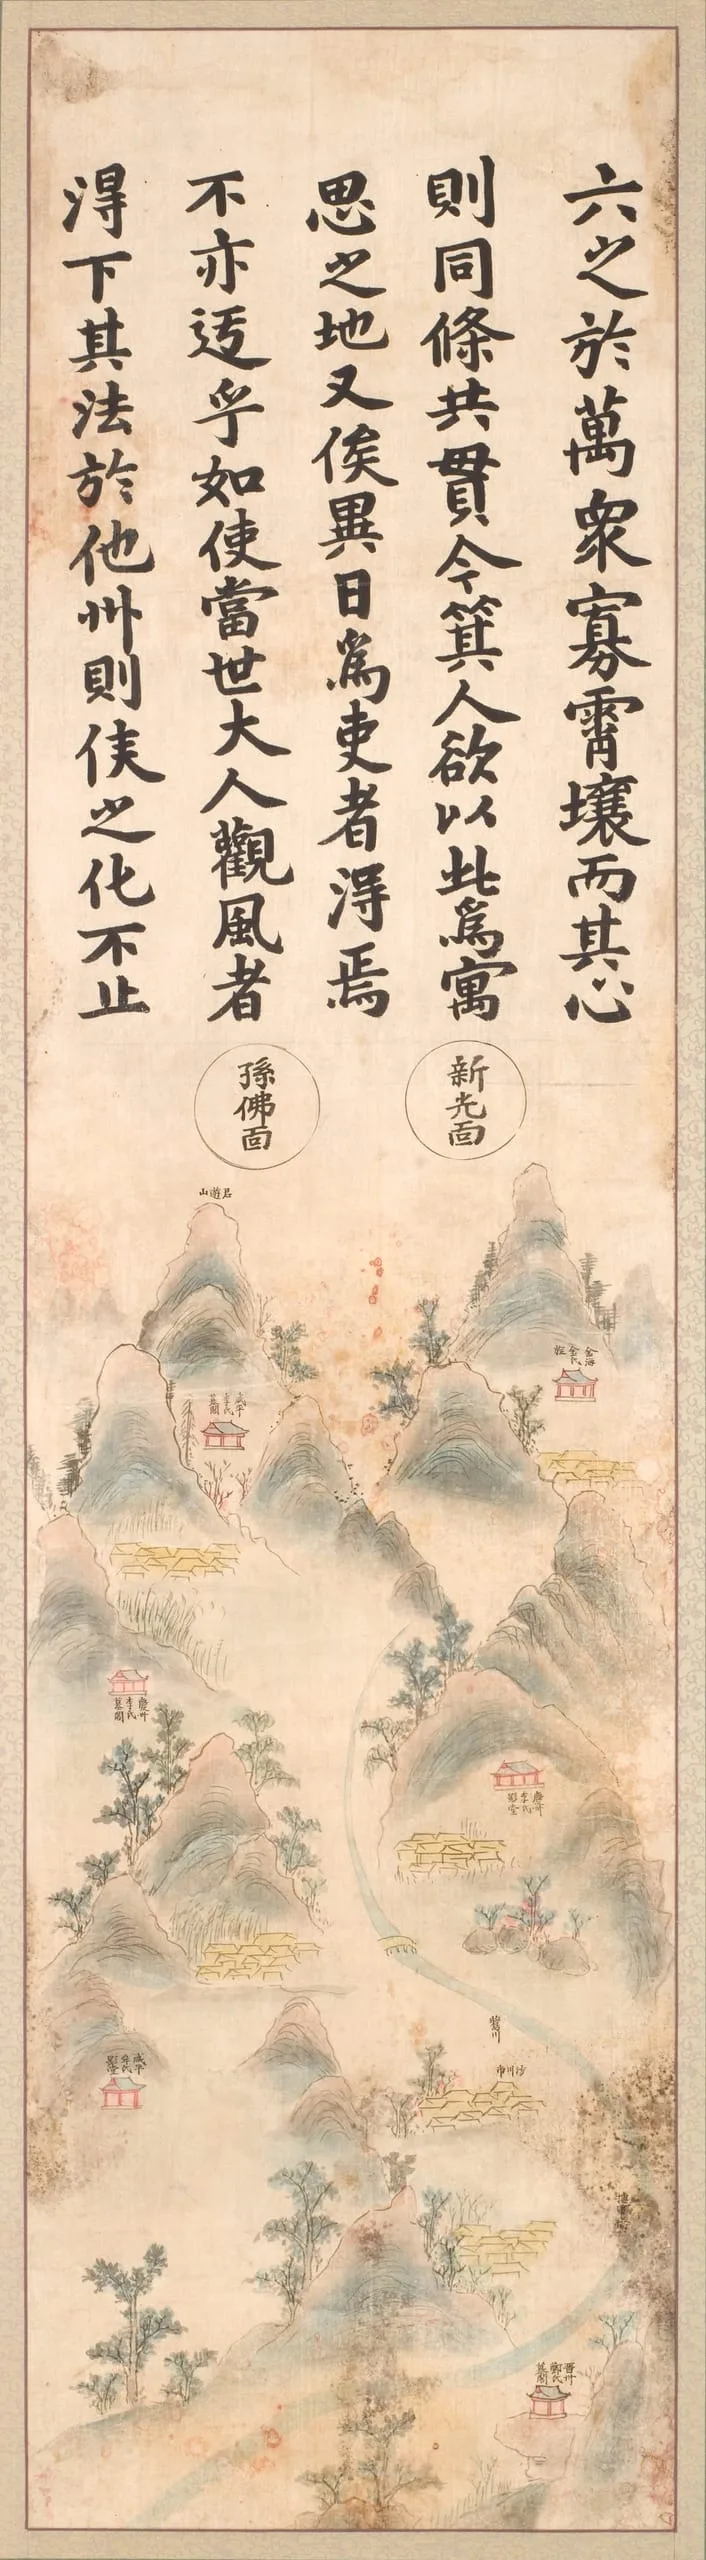 六之於萬衆寡霄壤而其心
則同條共貫今箕人欲以此爲寓
思之地又俟異日爲吏者淂焉
不亦迃乎如使當世大人觀風者
淂下其法於他州則侯之化不止
新光面
孫佛面
君遊山
金海
金氏
咸平
李氏
墓閣
慶州
李氏
墓閣
李氏
影堂
咸平
牟氏
影堂
沙川市
晋州
鄭氏
墓閣